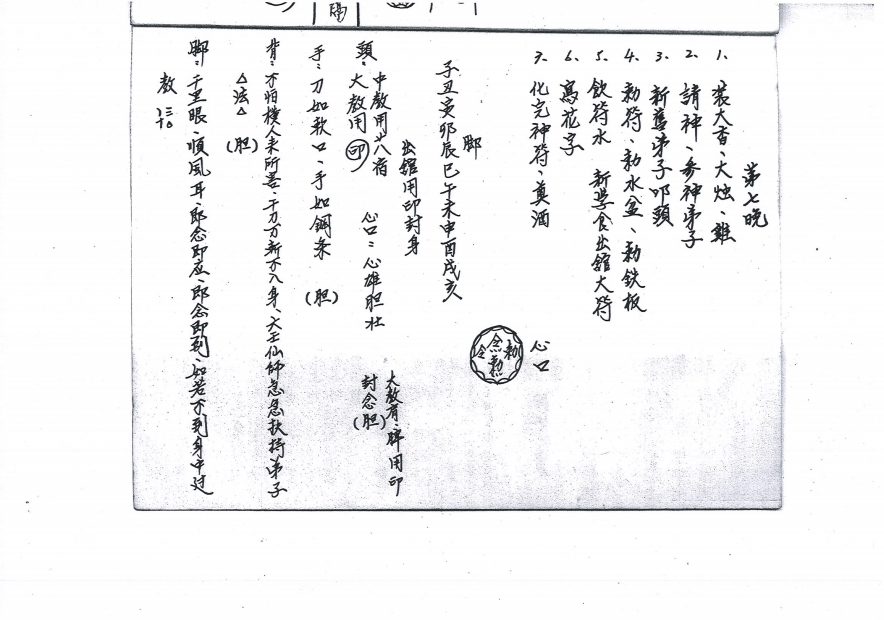 隔
第七晚
1、裝大香、大烛、雞
2、請神、参神弟子
3、新舊弟子叩頭
4、勅符、勅水盆、勅鉄板
5、飲符水 新學食出舘大符
6、寫花字
7、化完神符、奠酒
心口
勅念勲令
脚
子丑寅卯辰巳午未申酉戌亥
出舘用印封身
中教用廿八宿
頭：大教用印
心口：心雄胆壮
大教有：脾用印
封念胆
(胆)
手：刀如軟口、手如鋼条 (胆)
背：不怕樸人来所害、千刀万斬不入身、大王仙師急急扶持弟子
△法△ (胆)
脚：千里眼、順風耳、郎念即应、郎念即到、如若不到身中过
教